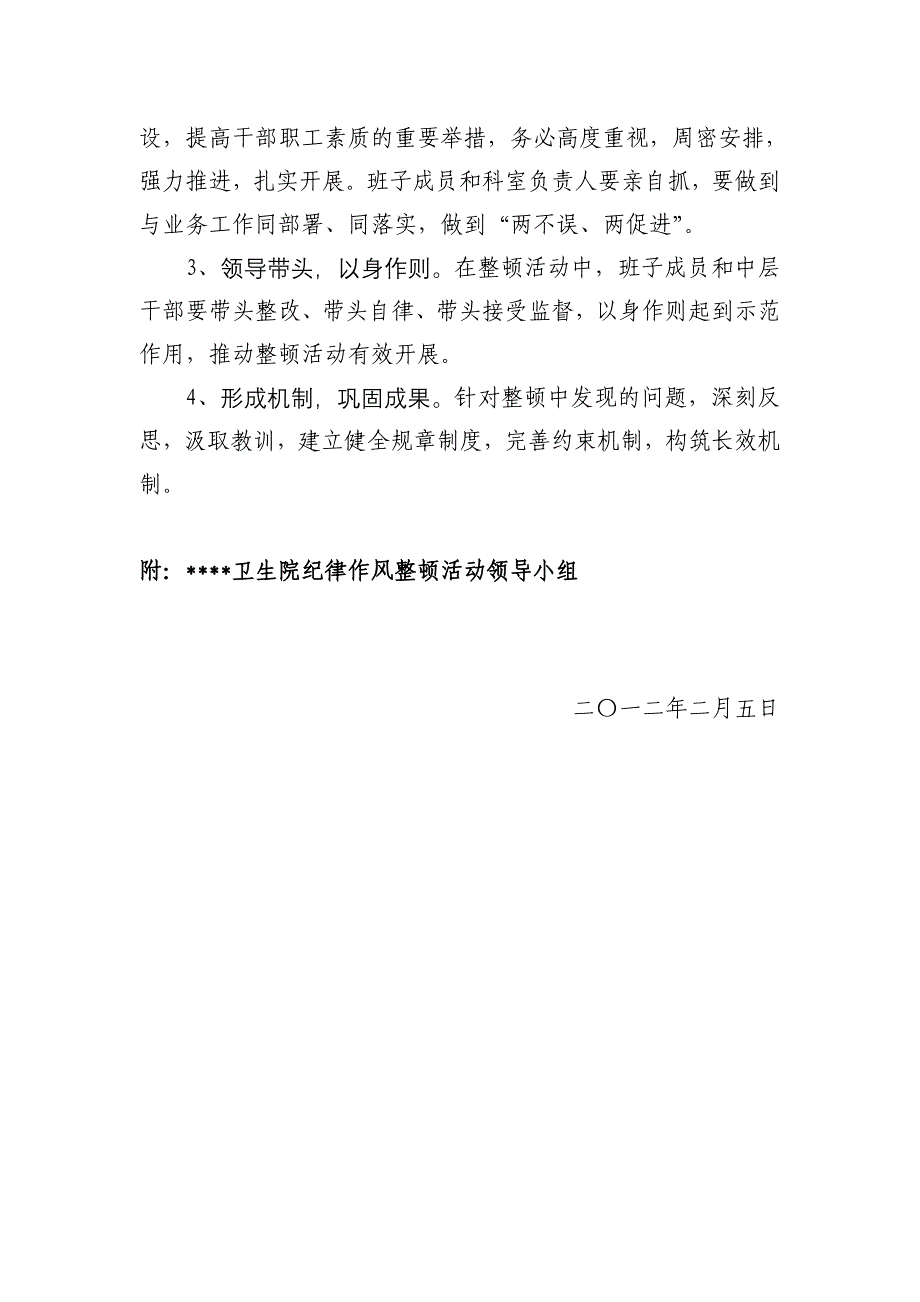 设，提高干部职工素质的重要举措，务必高度重视，周密安排，
强力推进，扎实开展。班子成员和科室负责人要亲自抓，要做到
与业务工作同部署、同落实，做到“两不误、两促进”。
3、领导带头，以身作则。在整顿活动中，班子成员和中层
干部要带头整改、带头自律、带头接受监督，以身作则起到示范
作用，推动整顿活动有效开展。
4、形成机制，巩固成果。针对整顿中发现的问题，深刻反
思，汲取教训，建立健全规章制度，完善约束机制，构筑长效机
制。
附：****卫生院纪律作风整顿活动领导小组
二〇一二年二月五日